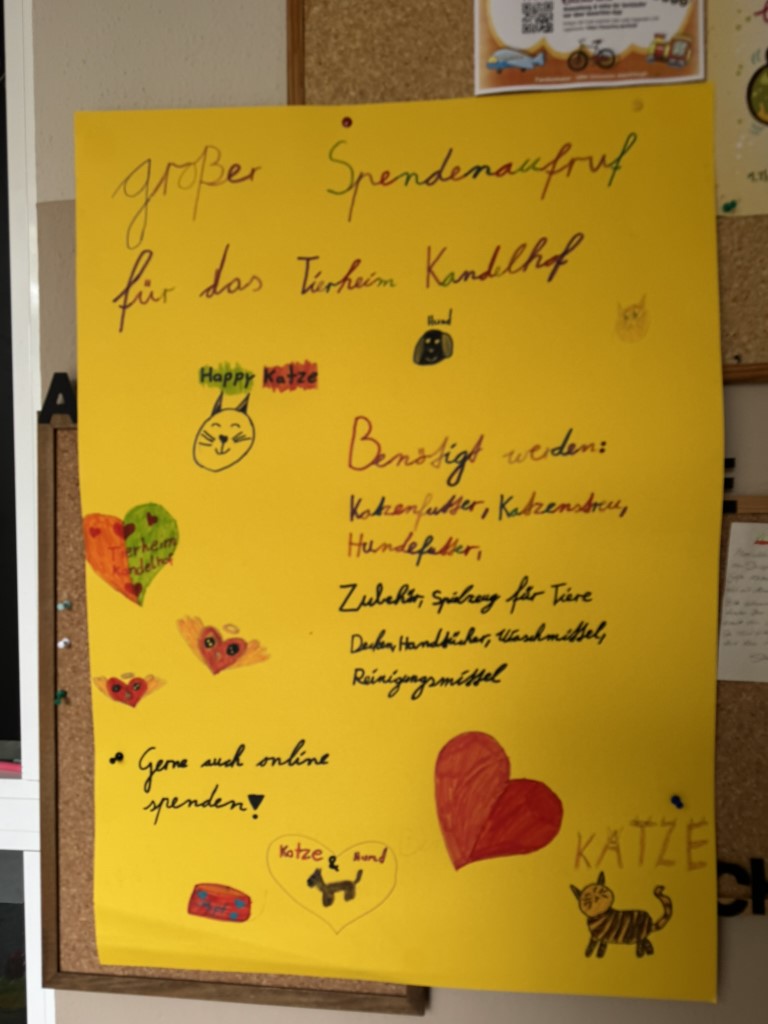 großer Spendenaufruf
für das Tierheim Kandelhof
Hund
Happy Katze
Benötigt werden:
Katzenfutter, Katzenstreu,
Hundefutter,
Tierheim
Kandelhof
Zubehör, Spielzeug für Tiere
Decken, Handtücher, Waschmittel,
Reinigungsmittel
Gerne auch online
spenden!
Katze & Hund
KATZE